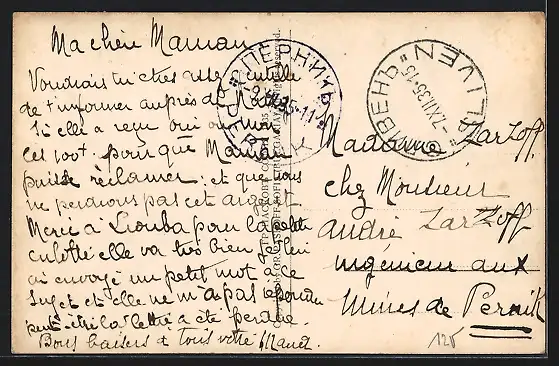 Ma chère Maman
Voudrais tu être assez gentille
de t'informer auprès de
Si elle a reçu oui ou non
ces 100+ pour que Maman
puisse réclamer et que nous
ne perdions pas cet argent
Merci à Liouba pour la petite
culotte elle va très bien, je lui
ai envoyé un petit mot à ce
sujet et elle ne m'a pas répondu
peut-être la lettre a été perdue.
Bons baisers à tous votre Manet.
Madame Zarzoff
chez Monsieur
André Zarzoff
ingénieur aux
Mines de Pernik
125
ПЕРНИКЪ
СЛИВЕНЪ
SLIVEN
-7.XII.35-15